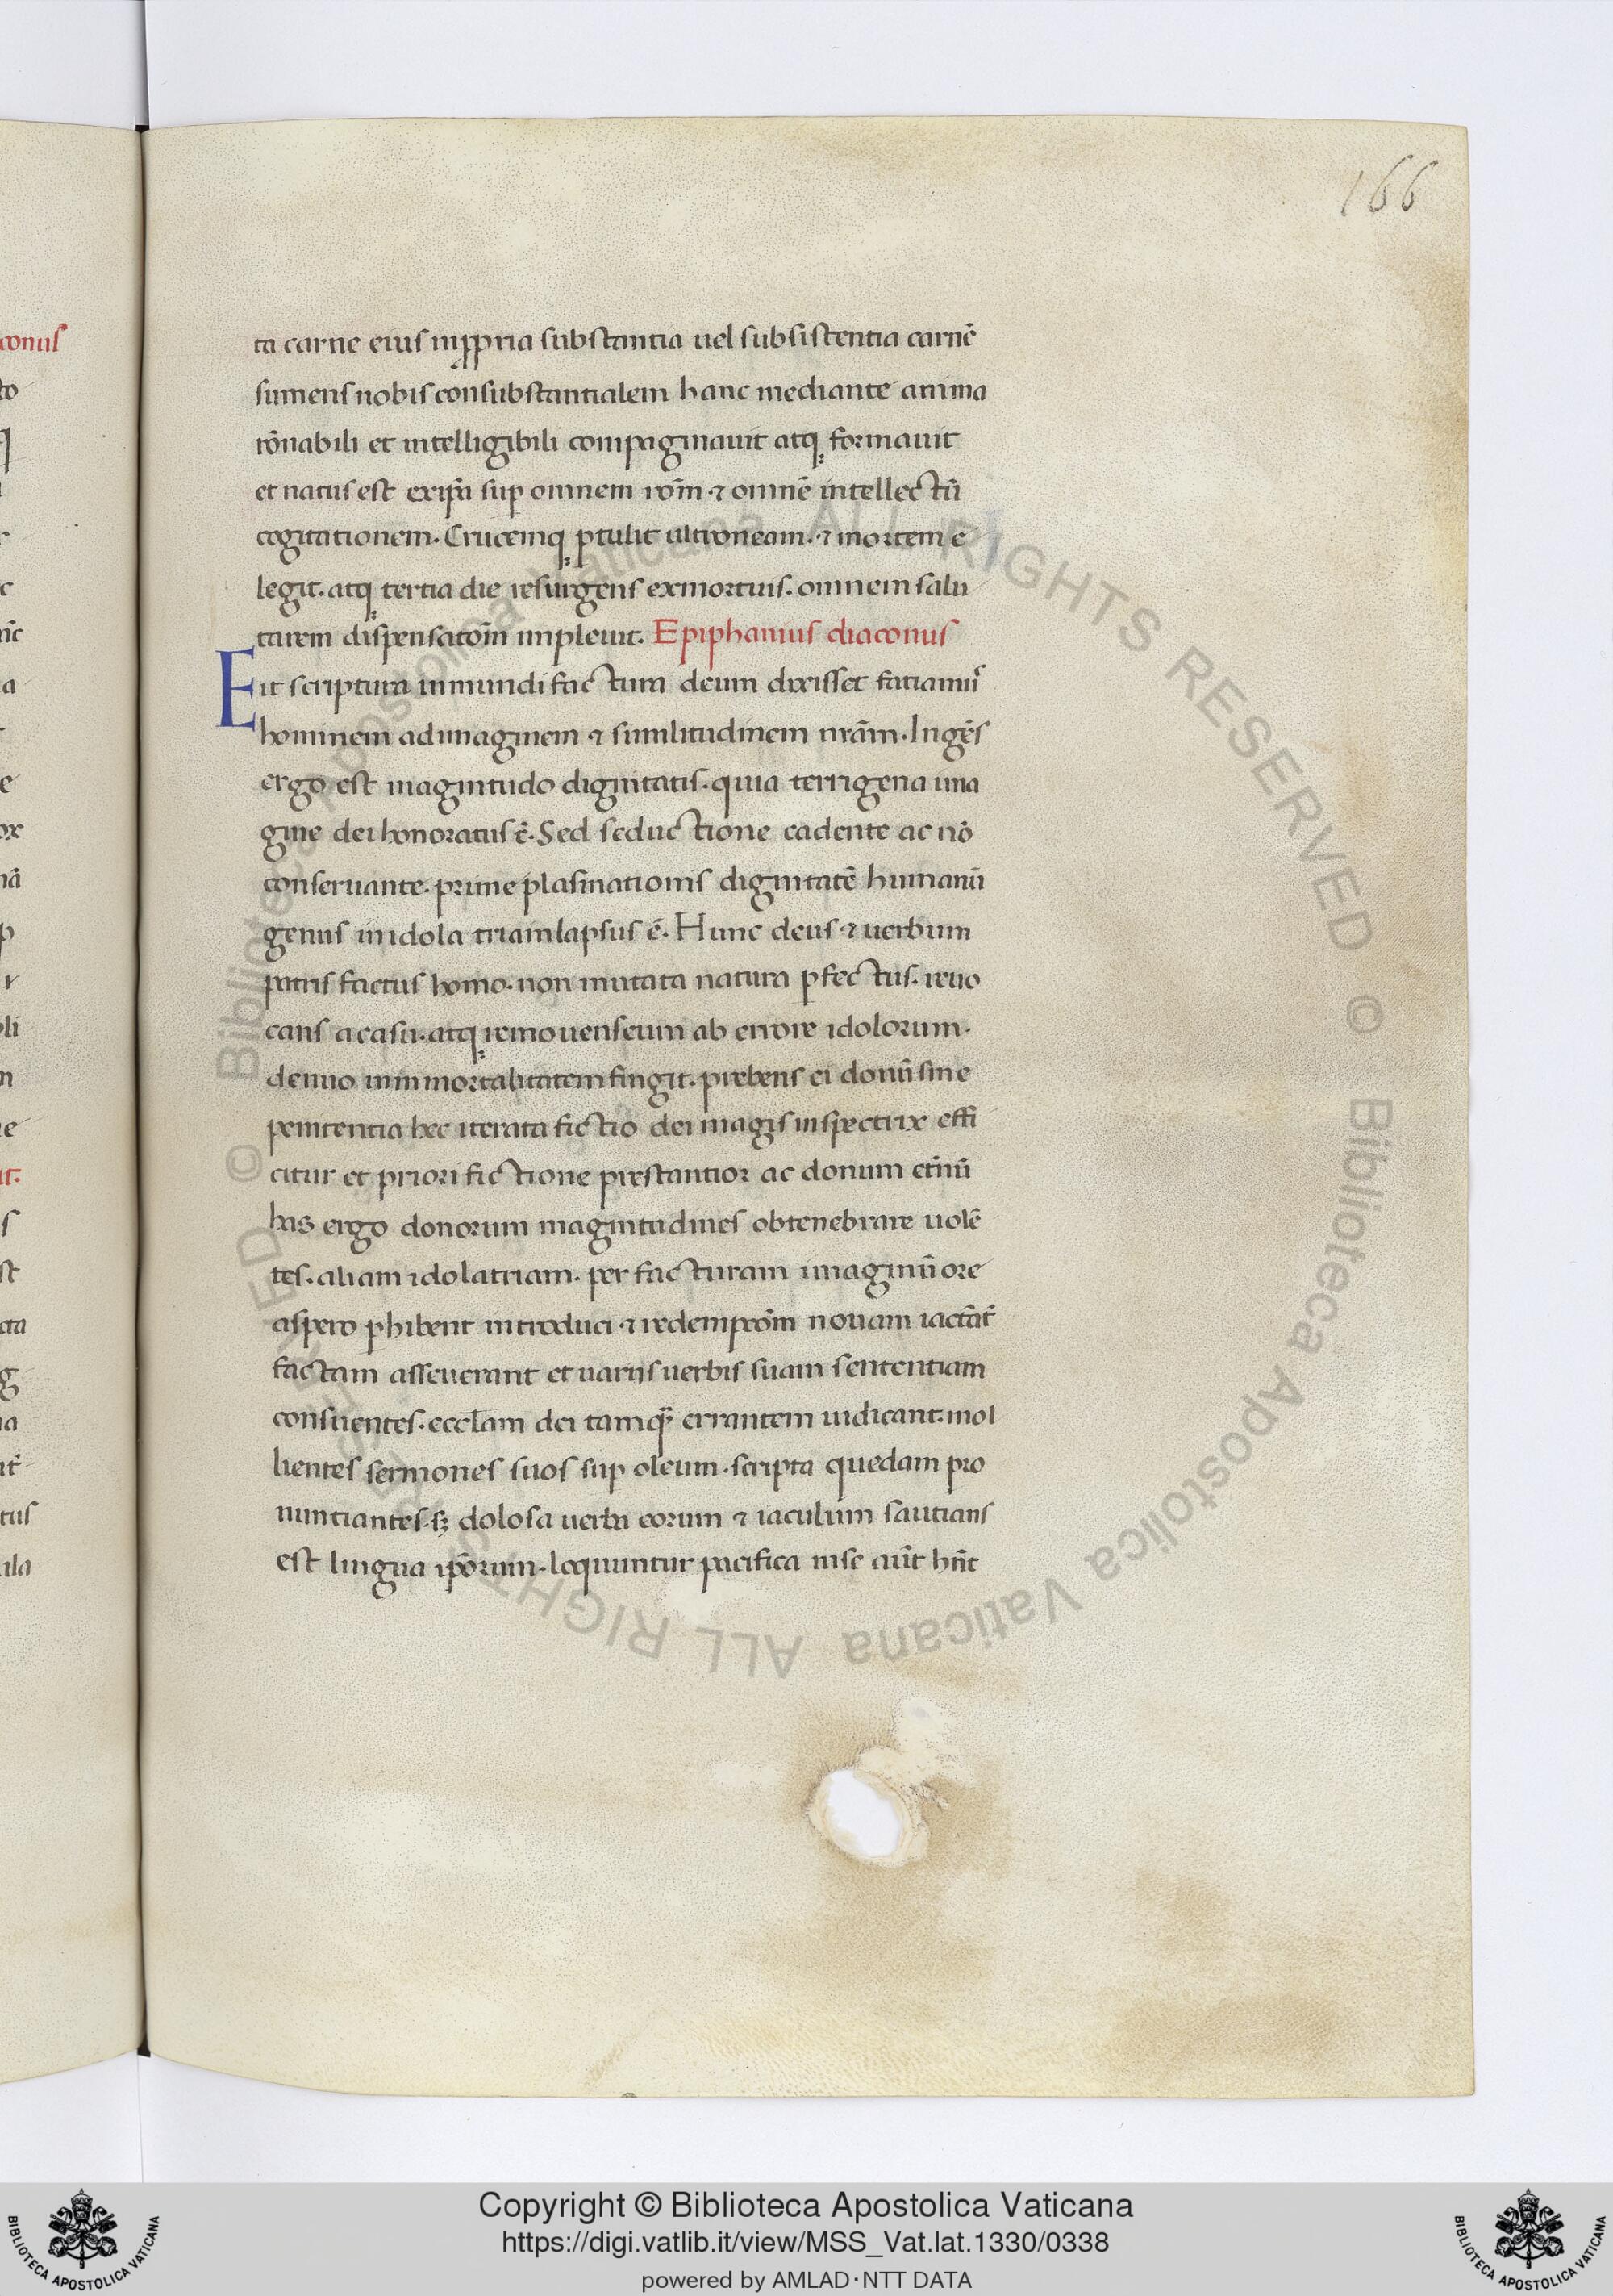 166
ta carne eius in ꝓpria substantia uel subsistentia carnē
sumens nobis consubstantialem hanc mediante anima
rōnabili et intelligibili compaginauit atqꝫ formauit
et natus est ex ip̄a suꝑ omnem rōm ⁊ omnē intellectū
cogitationem. Crucemqꝫ ꝑtulit ultroneam. ⁊ mortem e
legit. atqꝫ tertia die resurgens ex mortuis. omnem salu
tarem dispensatōm impleuit. Epiphanius diaconus
Eit scriptura in mundi factura deum dixisset fatiamus
hominem ad imaginem ⁊ similitudinem nr̄am. Ingēs
ergo est magnitudo dignitatis. quia terrigena ima
gine dei honoratus ē. Sed seductione cadente ac nō
conseruante. prime plasmationis dignitatē humanū
genus in idola triam lapsus ē. Hunc deus ⁊ uerbum
patris factus homo. non mutata natura ꝑfectus. reuo
cans a casu. atqꝫ remouens eum ab errore idolorum.
denuo in inmortalitatem fingit. prebens ei donū sine
penitentia hec iterata fictio dei magis inspectrix effi
citur et priori fictione prestantior ac donum et̄nū
has ergo donorum magnitudines obtenebrare uolē
tes. aliam idolatriam. per facturam imaginū ore
aspero ꝓhibent introduci ⁊ redemptōm nouam iactāt̄
factam asseuerant et uariis uerbis suam sententiam
consuentes. eccl̄am dei tamqꝫ errantem iudicant. mol
lientes sermones suos suꝑ oleum. scripta quedam pro
nuntiantes. sꝫ dolosa uerba eorum ⁊ iaculum sautians
est lingua ip̄orum. loquuntur pacifica in se aūt hn̄t
conus
Copyright © Biblioteca Apostolica Vaticana
https://digi.vatlib.it/view/MSS_Vat.lat.1330/0338
powered by AMLAD · NTT DATA
BIBLIOTECA APOSTOLICA VATICANA
BIBLIOTECA APOSTOLICA VATICANA
© Biblioteca Apostolica Vaticana ALL RIGHTS RESERVED
© Biblioteca Apostolica Vaticana ALL RIGHTS RESERVED